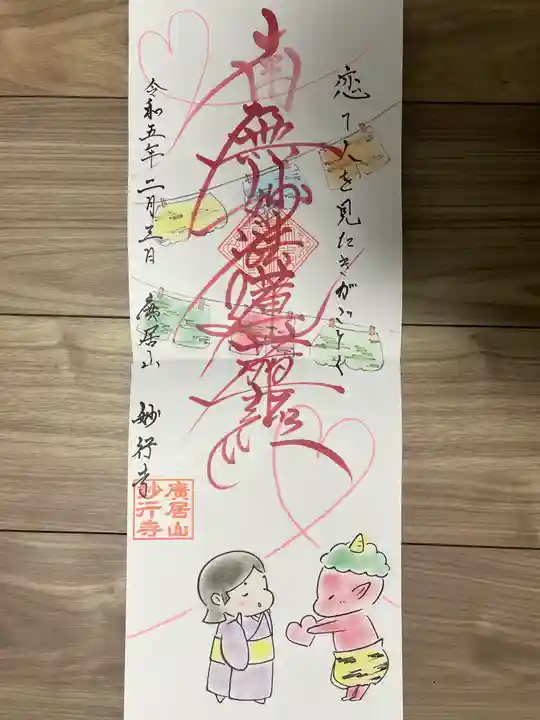 恋て人を見たきがごとく
南無妙法蓮華経
令和五年二月三日
廣居山 妙行寺
廣居山
妙行寺